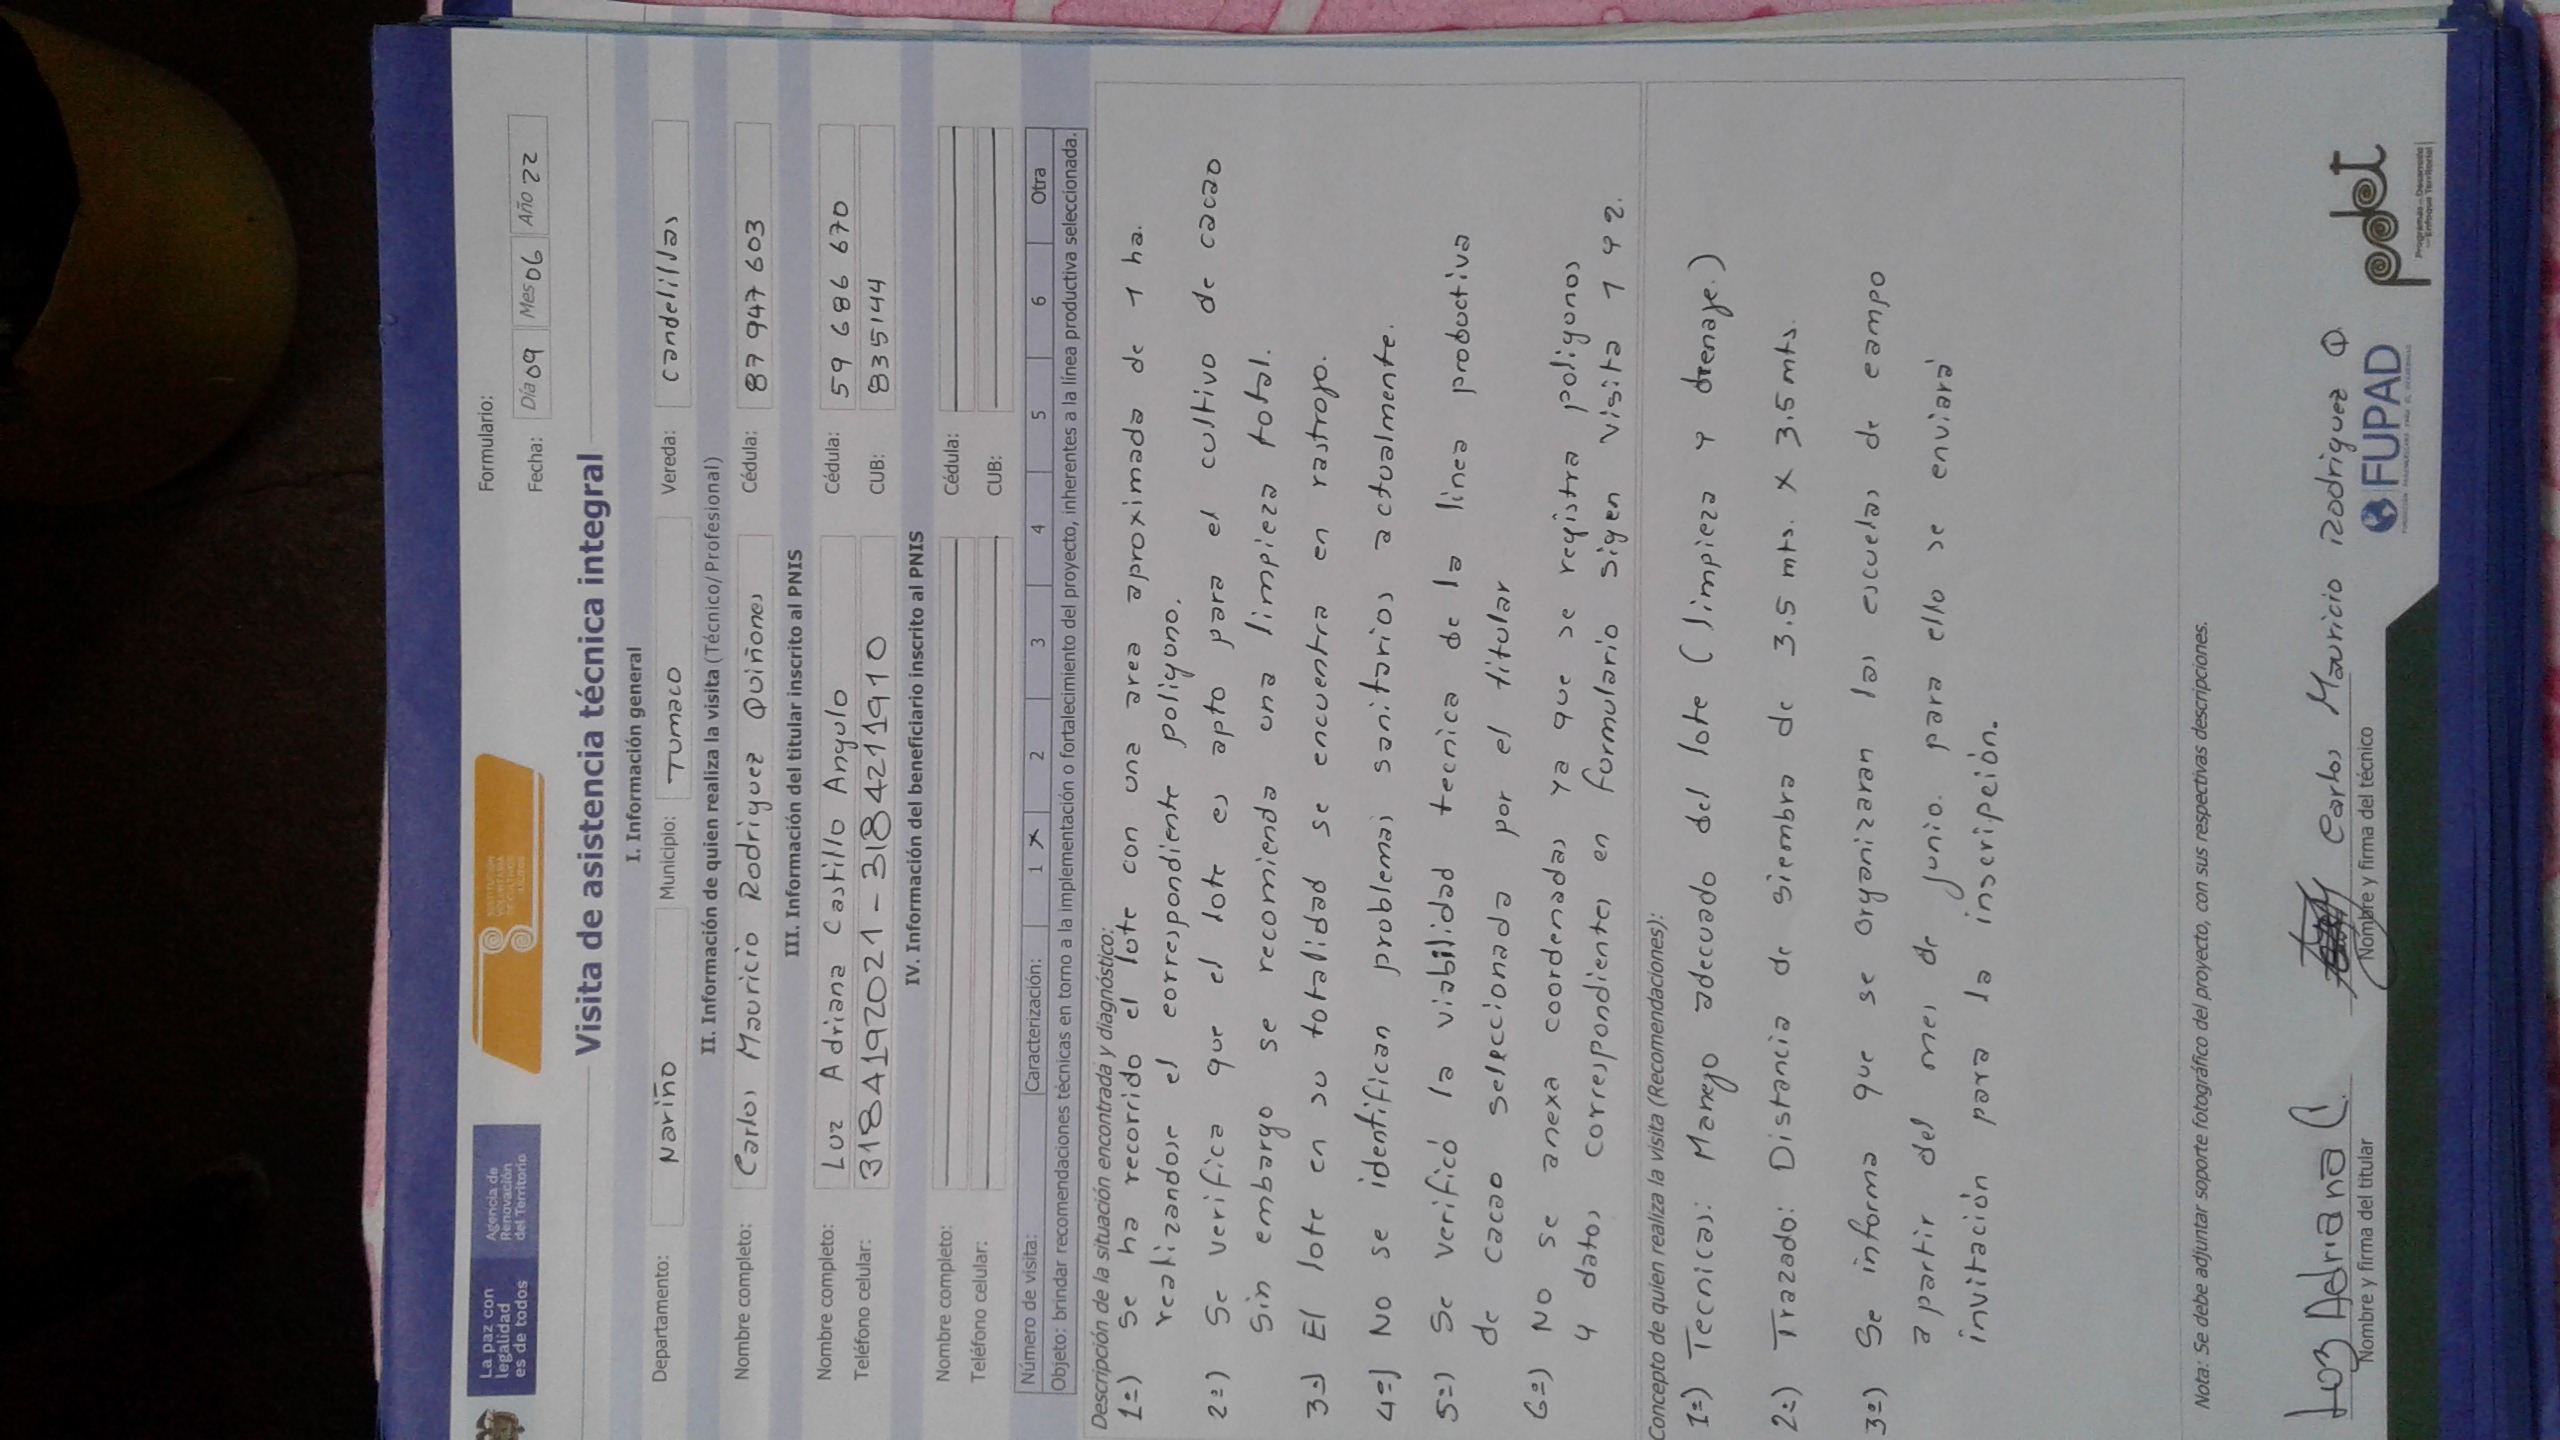 La paz con
legalidad
es de todos
Agencia de
Renovación
del Territorio
SUSTITUCIÓN
VOLUNTARIA
DE CULTIVOS
ILÍCITOS
Formulario:
Fecha: Día 09 Mes 06 Año 22
Visita de asistencia técnica integral
I. Información general
Departamento: Nariño Municipio: Tumaco Vereda: Candelillas
II. Información de quien realiza la visita (Técnico/Profesional)
Nombre completo: Carlos Mauricio Rodriguez Quiñones Cédula: 87 947 603
III. Información del titular inscrito al PNIS
Nombre completo: Luz Adriana Castillo Angulo Cédula: 59 686 670
Teléfono celular: 3184192021 - 3184211910 CUB: 835144
IV. Información del beneficiario inscrito al PNIS
Nombre completo: Cédula:
Teléfono celular: CUB:
Número de visita: Caracterización: 1 X 2 3 4 5 6 Otra
Objeto: brindar recomendaciones técnicas en torno a la implementación o fortalecimiento del proyecto, inherentes a la línea productiva seleccionada.
Descripción de la situación encontrada y diagnóstico:
1=) Se ha recorrido el lote con una area aproximada de 1 ha.
realizandose el correspondiente poligono.
2=) Se verifica que el lote es apto para el cultivo de cacao
Sin embargo se recomienda una limpieza total.
3=) El lote en su totalidad se encuentra en rastrojo.
4=) No se identifican problemas sanitarios actualmente.
5=) Se verificó la viabilidad tecnica de la linea probuctiva
de cacao seleccionada por el titular
6=) No se anexa coordenadas ya que se registra poligonos
y datos correspondientes en formulario sigen visita 1 y 2.
Concepto de quien realiza la visita (Recomendaciones):
1=) Tecnicas: Manejo adecuado del lote (limpieza y drenaje.)
2=) Trazado: Distancia de siembra de 3.5 mts. x 3.5 mts.
3=) Se informa que se organizaran las escuelas de campo
apartir del mes de junio. para ello se enviará
invitación para la inscripción.
Nota: Se debe adjuntar soporte fotográfico del proyecto, con sus respectivas descripciones.
Luz Adriana C. Carlos Mauricio Rodriguez Q.
Nombre y firma del titular Nombre y firma del técnico
FUPAD
FUNDACIÓN PANAMERICANA PARA EL DESARROLLO
pdet
Programas de Desarrollo
con Enfoque Territorial